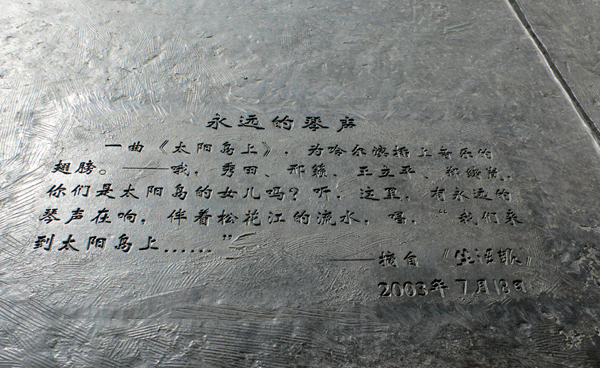 永远的琴声
一曲《太阳岛上》，为哈尔滨插上音乐的
翅膀。——哦，秀田、邢籁、王立平、郑绪岚，
你们是太阳岛的女儿吗？听，这里，有永远的
琴声在响，伴着松花江的流水，唱，“我们来
到太阳岛上……”
——摘自《生活报》
2003年7月18日